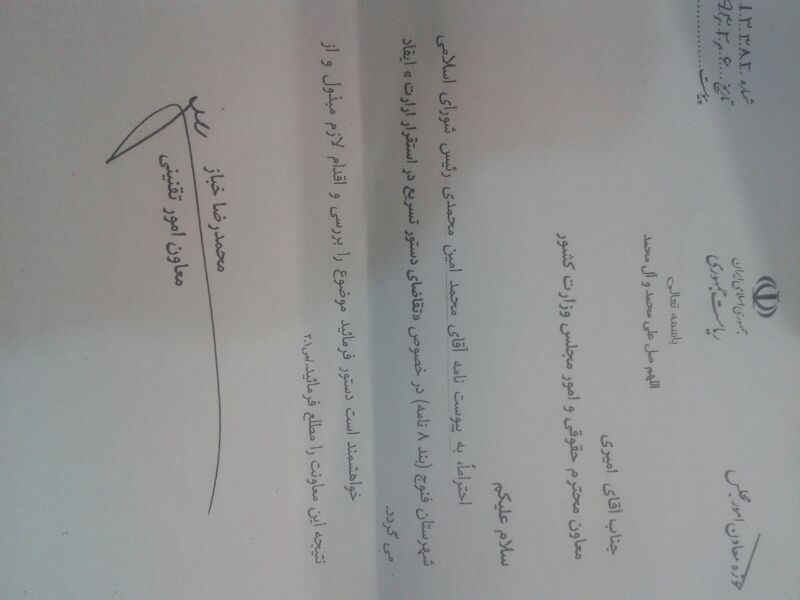 جمهوری اسلامی ایران
ریاست جمهوری
حوزه معاون امور مجلس
شماره
تاریخ
پیوست
باسمه تعالی
اللهم صل علی محمد و آل محمد
جناب آقای امیری
معاون محترم حقوقی و امور مجلس وزارت کشور
سلام علیکم
احتراماً، به پیوست نامه آقای محمد امین محمدی رئیس شورای اسلامی
شهرستان فنوج (بند ۸ نامه) در خصوص «تقاضای دستور تسریع در استقرار ادارت» ایفاد
می گردد.
خواهشمند است دستور فرمائید موضوع را بررسی و اقدام لازم مبذول و از
نتیجه این معاونت را مطلع فرمائید.
محمدرضا خباز
معاون امور تقنینی